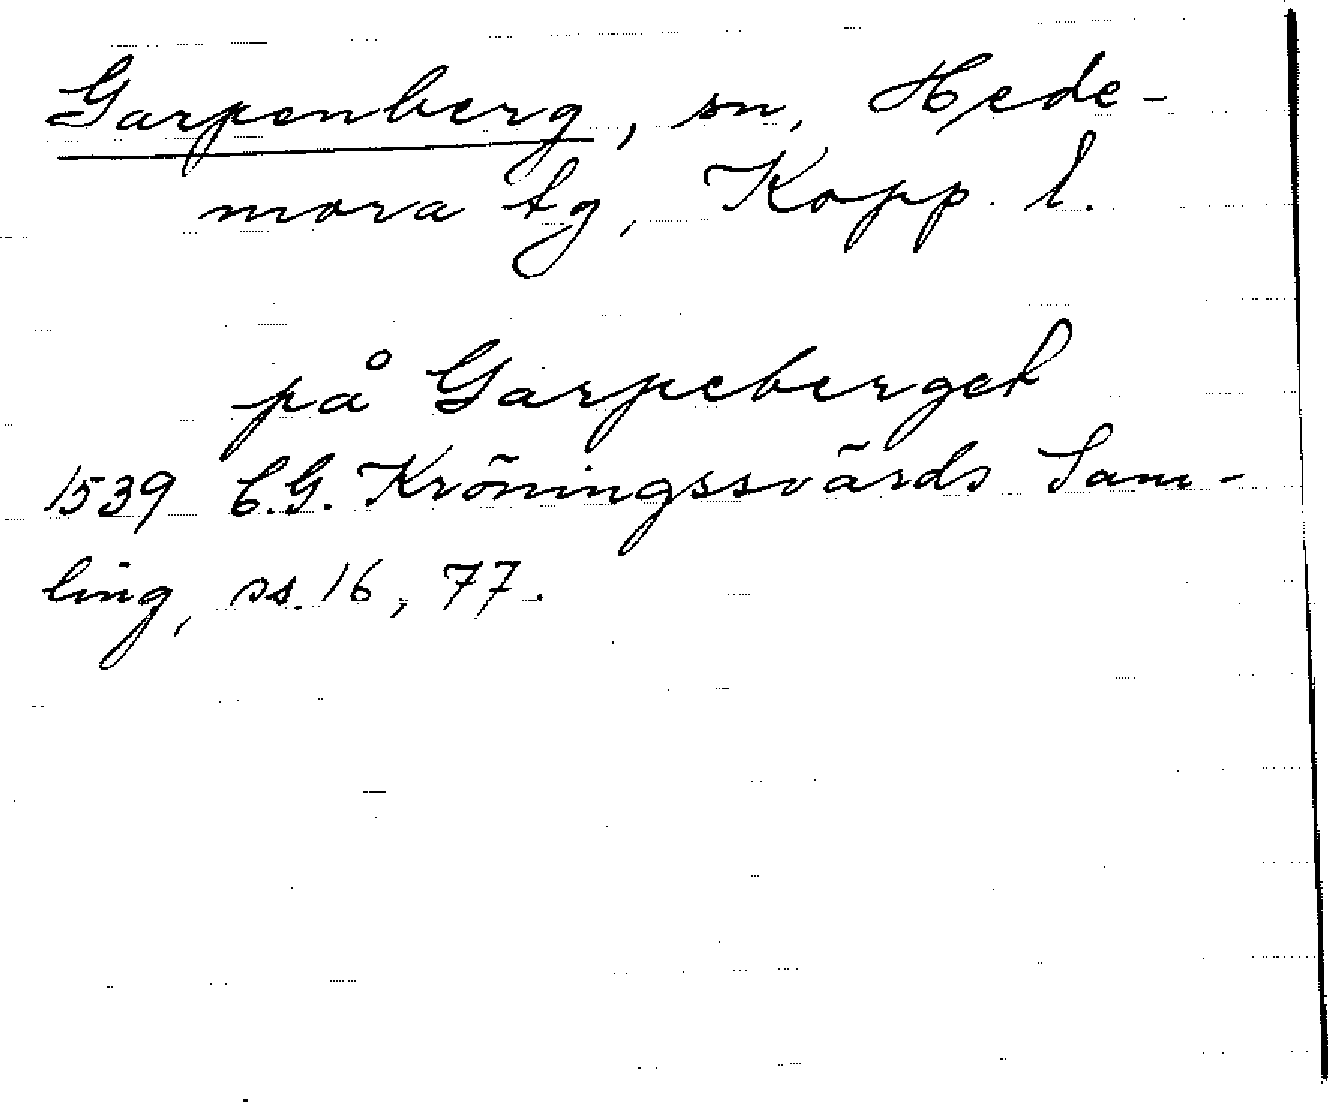 Garpenberg, sn, Hede-
mora tg, Kopp. l.
på Garpeberget
1539 C.G. Kröningssvärds Sam-
ling, ss. 16, 77.